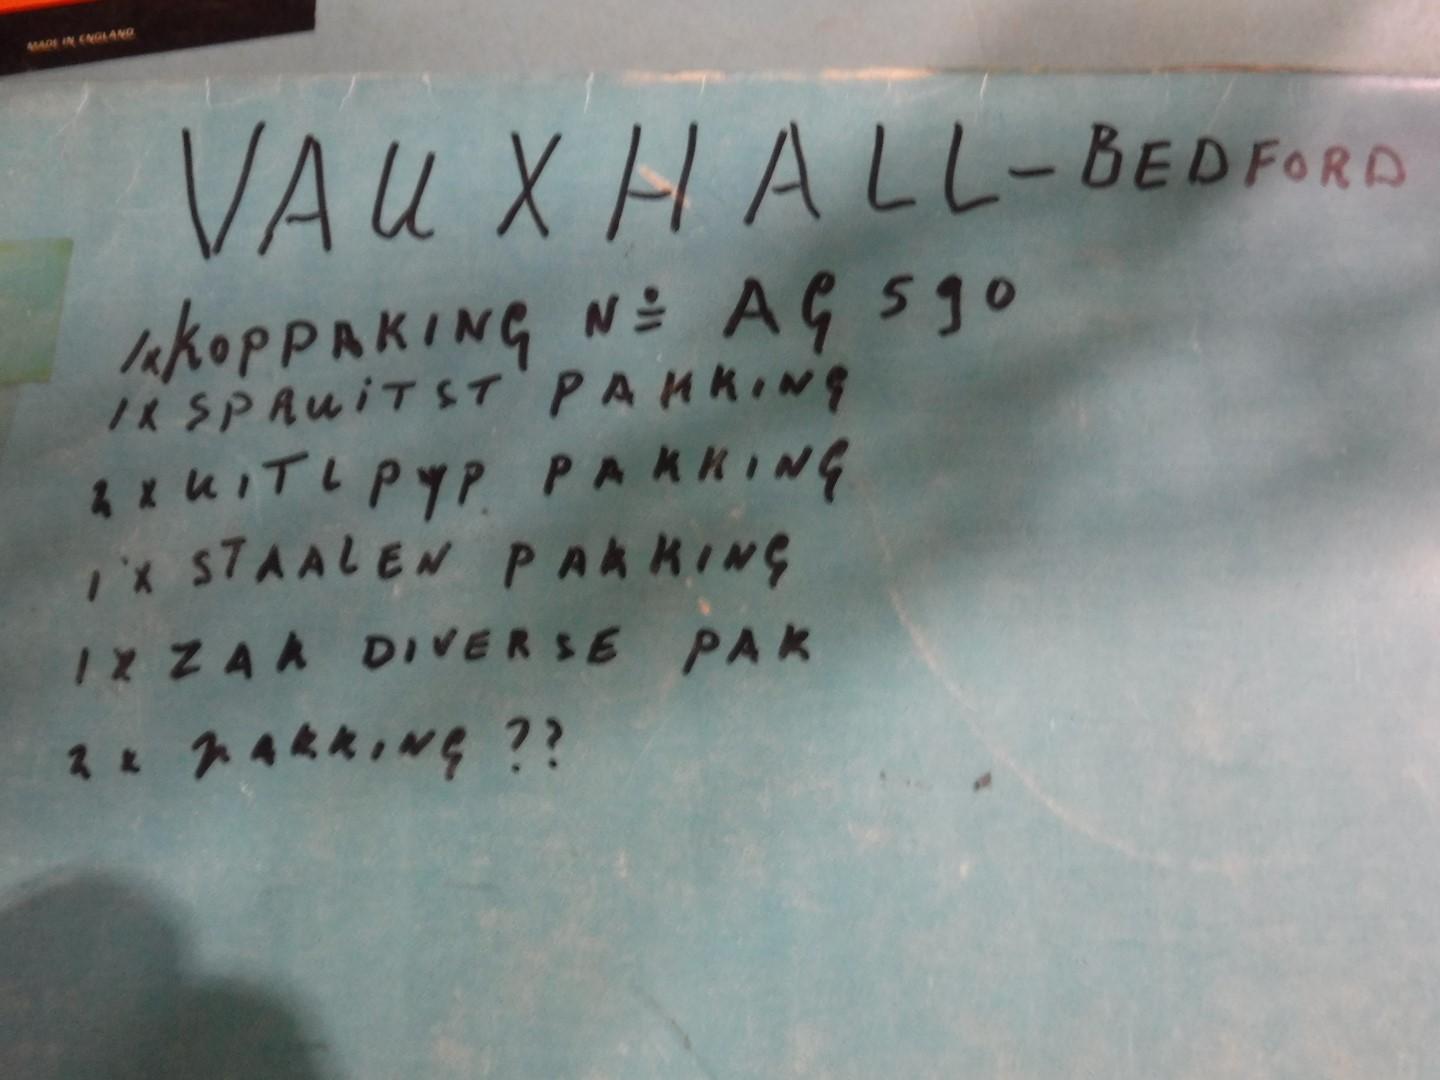 MADE IN ENGLAND
VAUXHALL-BEDFORD
1x KOPPAKING Nº AG 590
1x SPRUITST PAKKING
2x UITLPYP PAKKING
1x STAALEN PAKKING
1x ZAK DIVERSE PAK
2x PAKKING ??